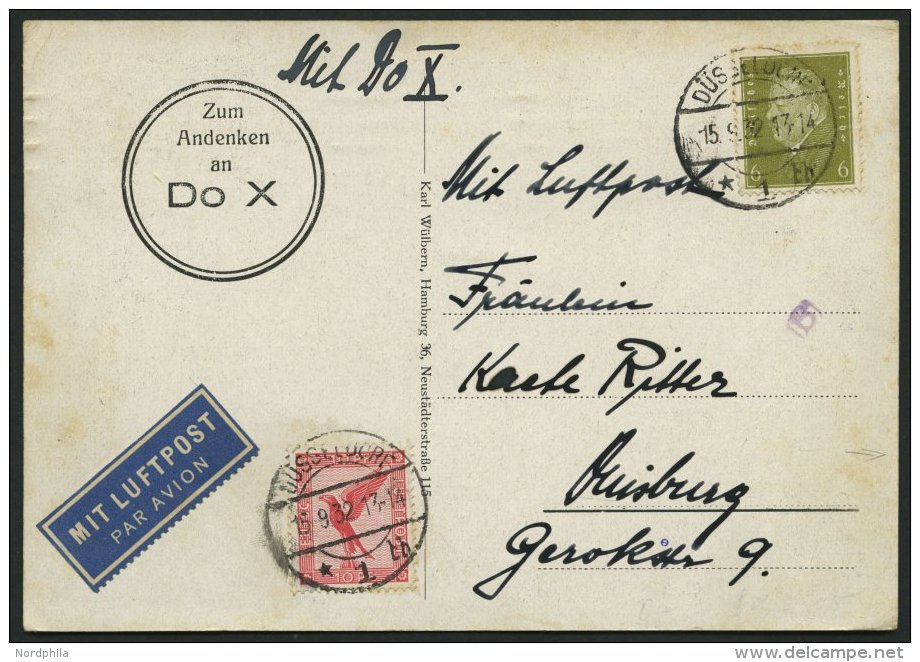 Mit Do X.
Zum
Andenken
an
Do X
DÜSSELDORF
15.9.32 13-14
* 1 Eh
6 6
Karl Wülbern, Hamburg 36, Neustädterstraße 115
Mit Luftpost
Fräulein
Kaete Ritter
Duisburg
Gerokstr 9.
B
MIT LUFTPOST
PAR AVION
DÜSSELDORF
15.9.32 13-14
* 1 Eh
10
Nordphila
delcampe.net